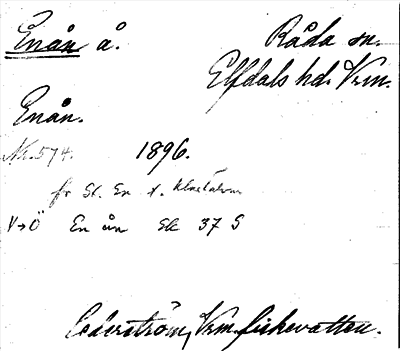 Enån å. Råda sn.
Elfdals hd. Vrm.
Enån.
Nr. 574. 1896.
fr Sl. En x.
V→Ö En ån Sk 37 S
Cederström, Vrm. fiskevatten.